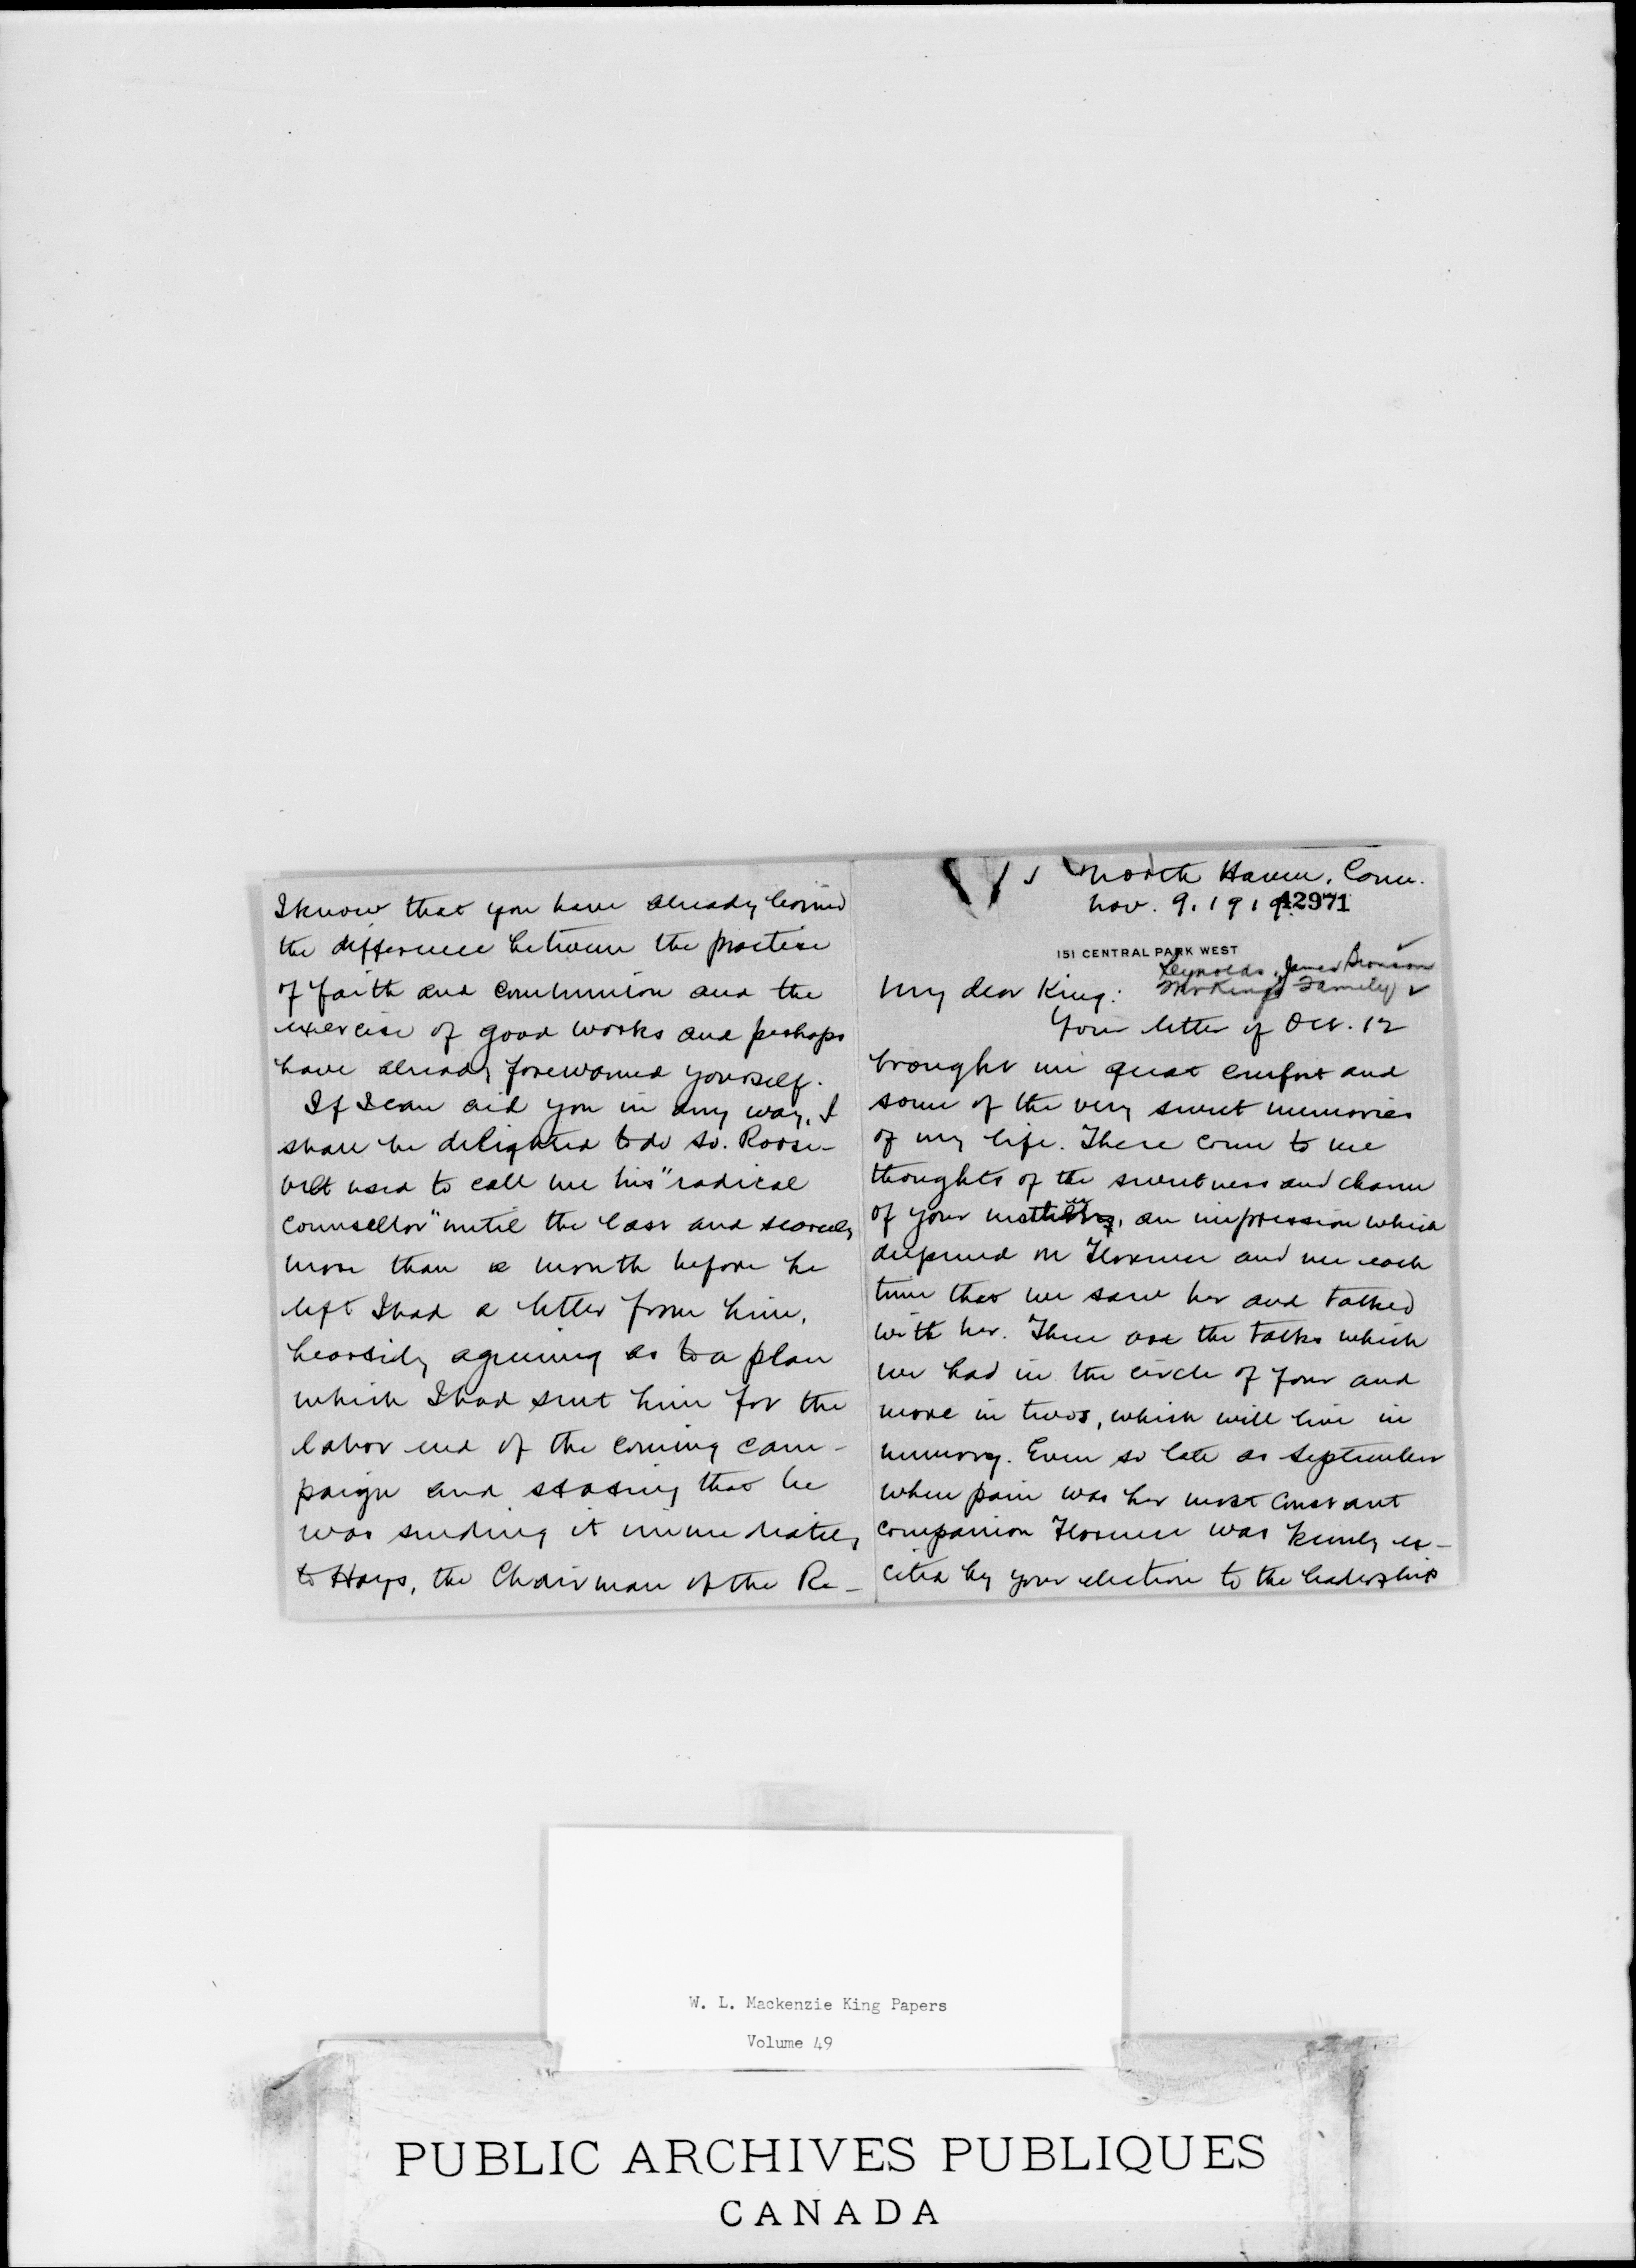 I know that you have already learned
the difference between the practice
of faith and communion and the
exercise of good works and perhaps
have already forewarned yourself.
If I can aid you in any way, I
shall be delighted to do so. Roose-
velt used to call me his "radical
counsellor" until the last and scarcely
more than a month before he
left I had a letter from him,
heartily agreeing as to a plan
which I had sent him for the
labor end of the coming cam-
paign and stating that he
was sending it immediately
to Hays, the Chairman of the Re-
North Haven, Conn.
Nov. 9, 1919
42971
151 CENTRAL PARK WEST
Reynolds, James Bronson
Mr King's Family
My dear King:
Your letter of Oct. 12
brought me great comfort and
some of the very sweet memories
of my life. There come to me
thoughts of the sweetness and charm
of your mother, an impression which
deepened on Florence and me each
time that we saw her and talked
with her. There are the talks which
we had in the circle of four and
more in twos, which will live in
memory. Even so late as September
when pain was her most constant
companion Florence was keenly ex-
cited by your election to the leadership
W. L. Mackenzie King Papers
Volume 49
PUBLIC ARCHIVES PUBLIQUES
CANADA